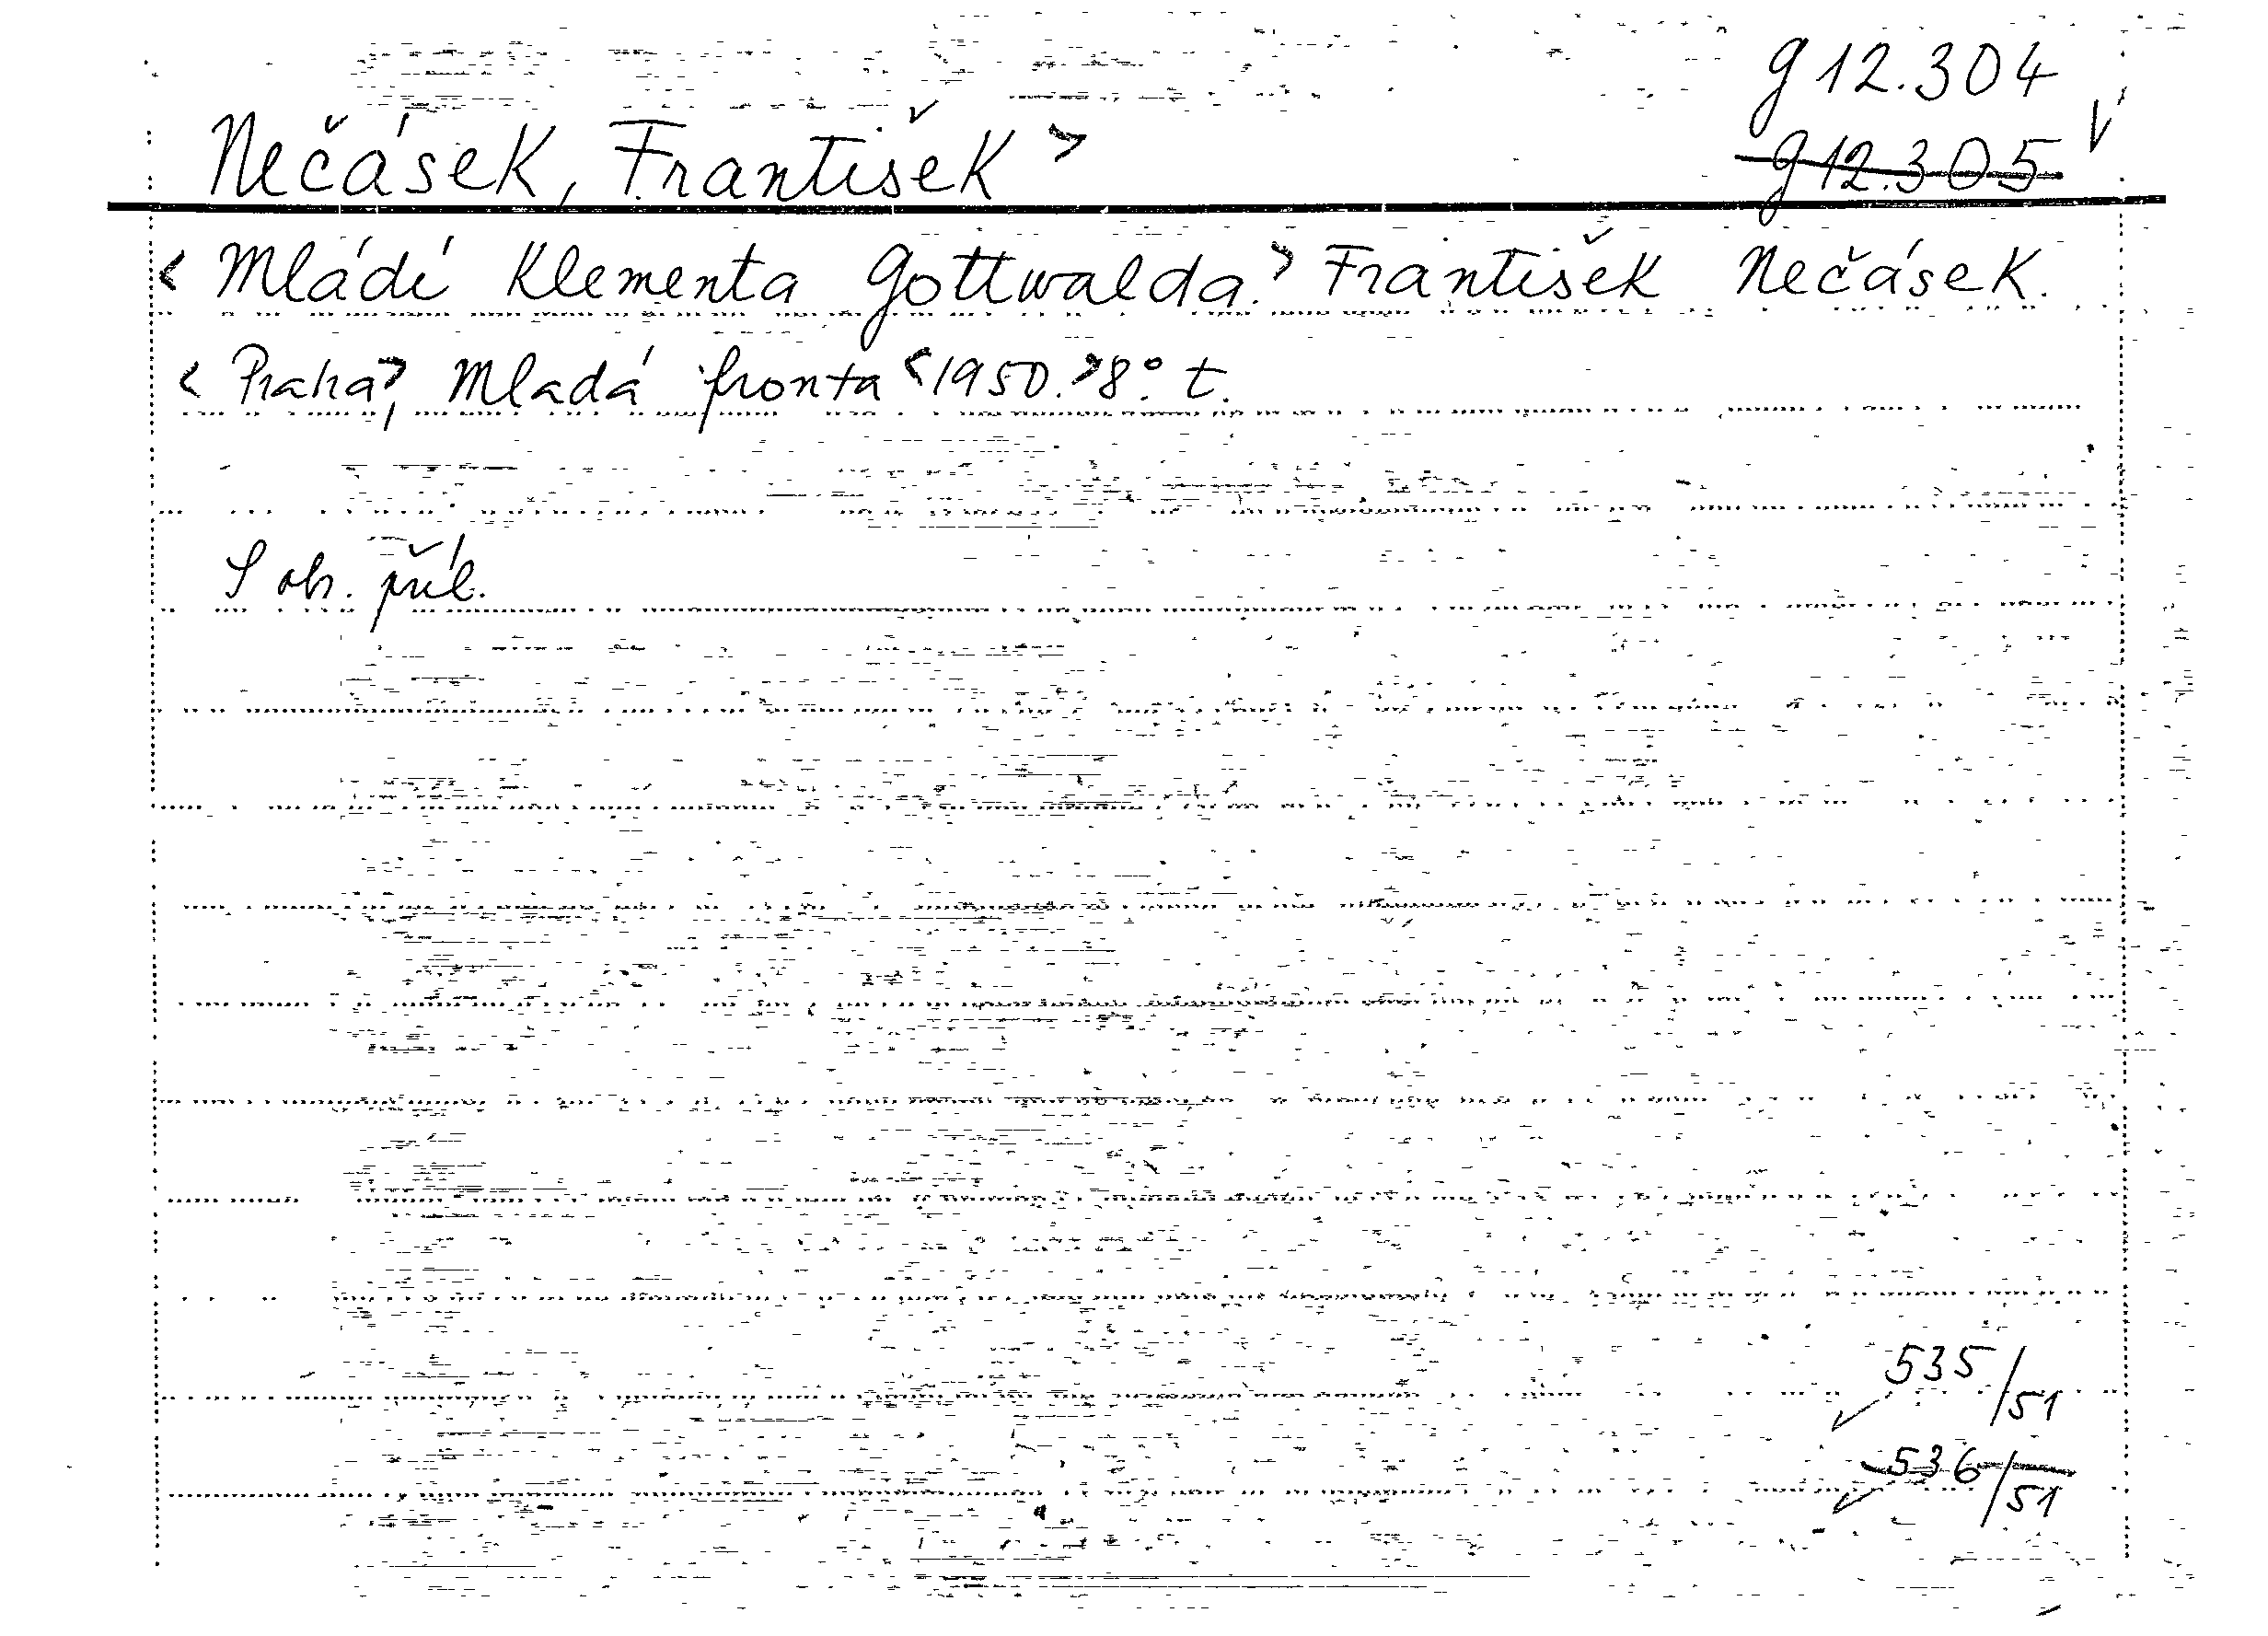 g 12.304
Nečásek, František >
g 12.305
< Mládí Klementa Gottwalda.> František Nečásek.
< Praha>, Mladá fronta <1950.> 8° t.
S obr. příl.
535/51
536/51